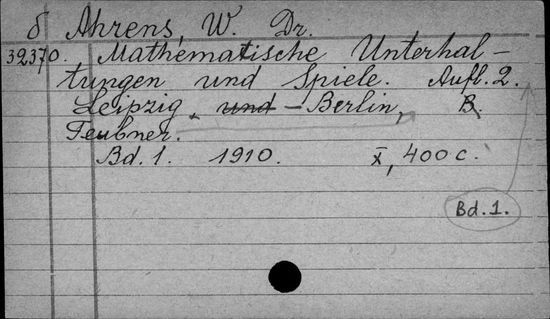 δ Ahrens, W. Dr.
39370. Mathematische Unterhal-
tungen und Spiele. Aufl. 2.
Leipzig. und - Berlin, B.
Teubner.
Bd. 1. 1910. X, 400 c.
Bd. 1.